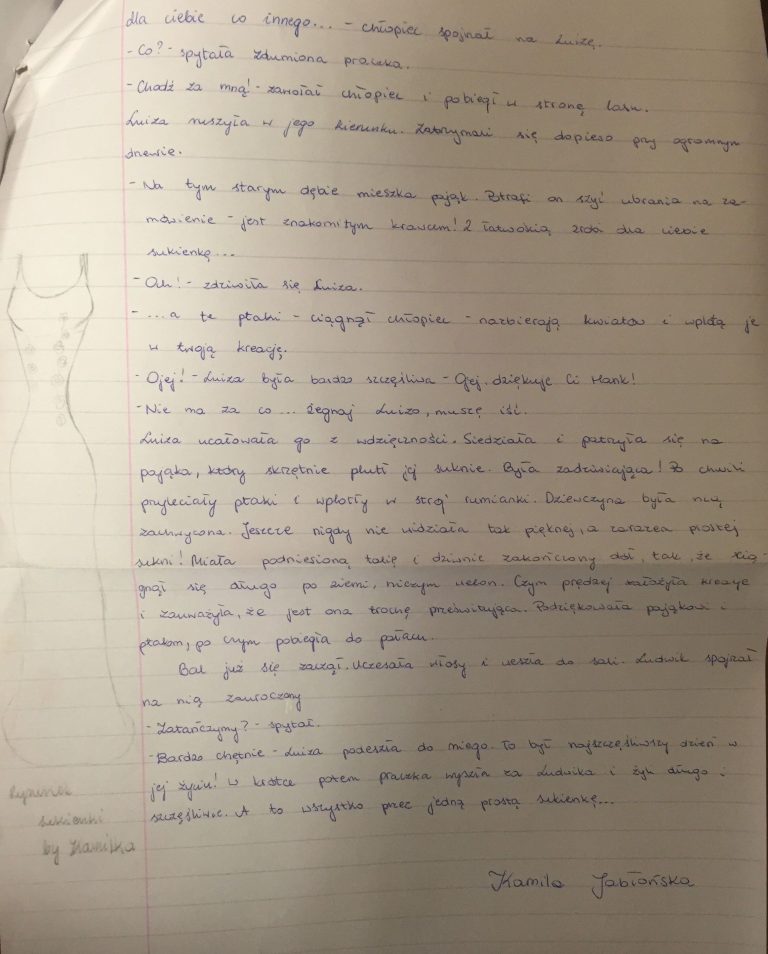 dla ciebie co innego... - chłopiec spojrzał na Luizę.
- Co? - spytała zdumiona praczka.
- Chodź za mną! - zawołał chłopiec i pobiegł w stronę lasu.
Luiza ruszyła w jego kierunku. Zatrzymali się dopiero przy ogromnym
drzewie.
- Na tym starym dębie mieszka pająk. Potrafi on szyć ubrania na za-
mówienie - jest znakomitym krawcem! Z łatwością zrobi dla ciebie
sukienkę...
- Och! - zdziwiła się Luiza.
- ...a te ptaki - ciągnął chłopiec - nazbierają kwiatów i wplotą je
w twoją kreację.
- Ojej! - Luiza była bardzo szczęśliwa - Ojej, dziękuję Ci Hank!
- Nie ma za co... Żegnaj Luizo, muszę iść.
Luiza ucałowała go z wdzięczności. Siedziała i patrzyła się na
pająka, który skrzętnie plutł jej suknie. Była zadziwiająca! Po chwili
przyleciały ptaki i wplotły w strój rumianki. Dziewczyna była nią
zachwycona. Jeszcze nigdy nie widziała tak pięknej, a zarazem prostej
sukni! Miała podniesioną talię i dziwnie zakończony dół, tak, że cią-
gnął się długo po ziemi, niczym welon. Czym prędzej założyła kreacje
i zauważyła, że jest ona trochę prześwitująca. Podziękowała pająkowi i
ptakom, po czym pobiegła do pałacu.
Bal już się zaczął. Uczesała włosy i weszła do sali. Ludwik spojrzał
na nią zauroczony
- Zatańczymy? - spytał.
- Bardzo chętnie - Luiza podeszła do niego. To był najszczęśliwszy dzień w
jej życiu! W krótce potem praczka wyszła za Ludwika i żyli długo i
szczęśliwie. A to wszystko przez jedną prostą sukienkę...
Kamila Jabłońska
Rysunek
sukienki
by Kamilka